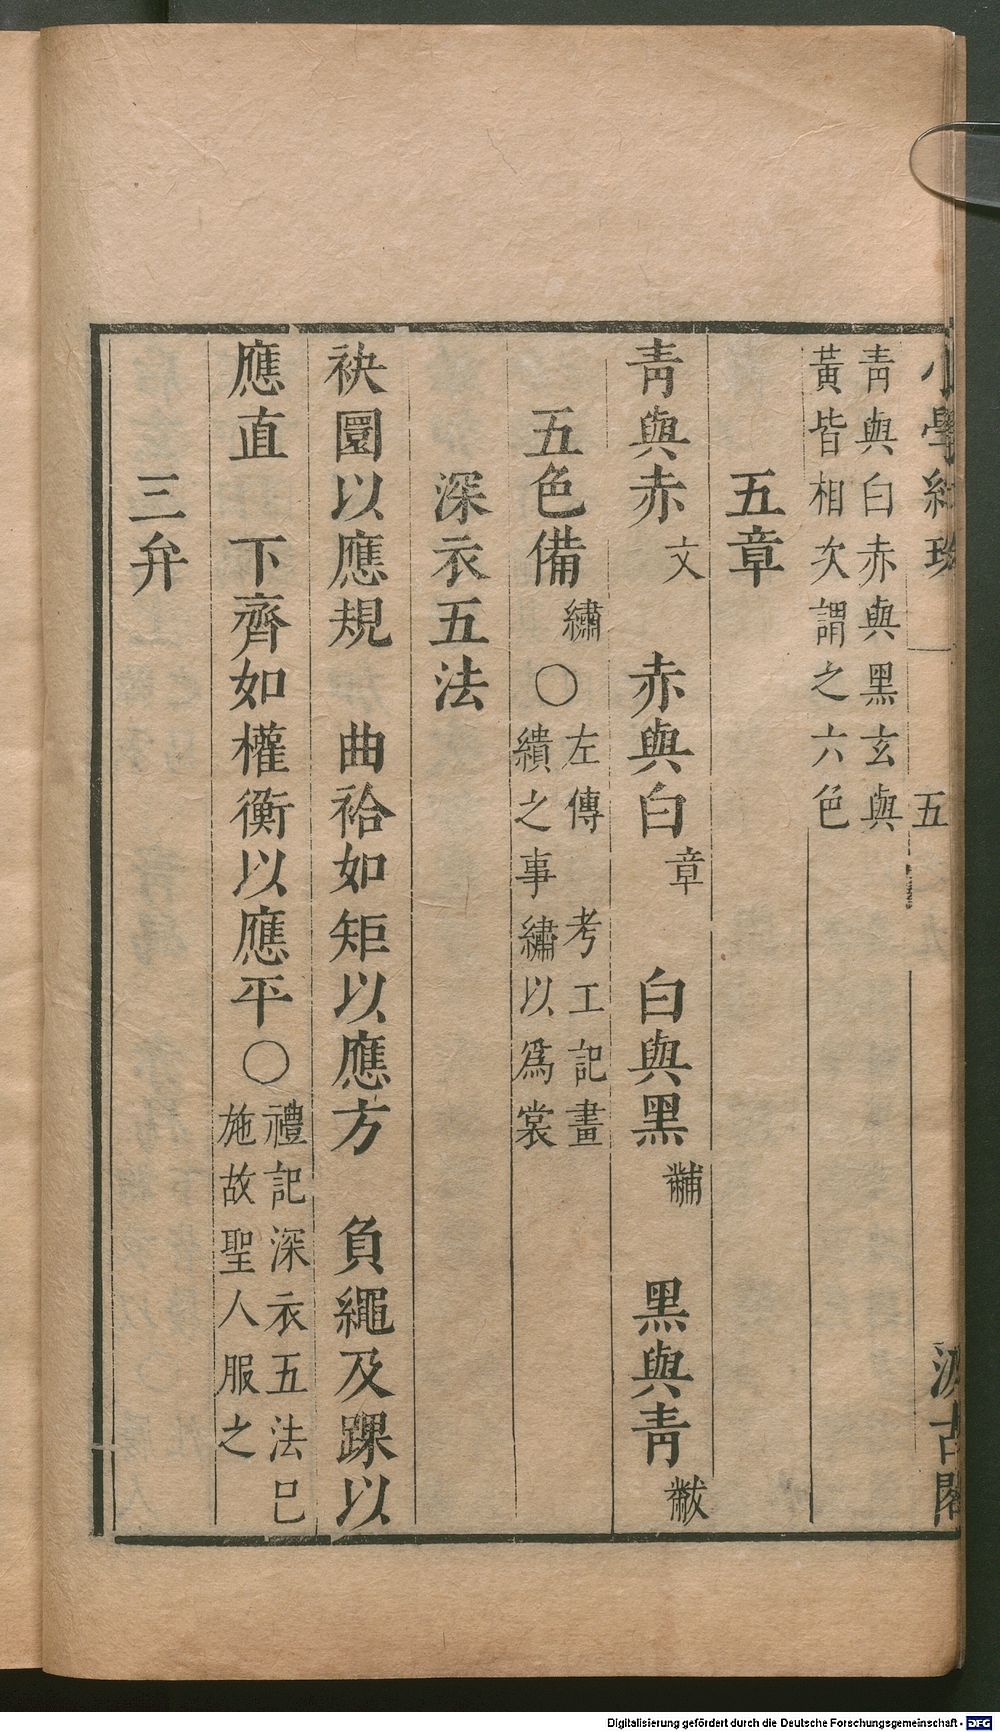 小學紺珠 五 汲古閣
青與白赤與黑玄與
黃皆相次謂之六色
五章
青與赤文 赤與白章 白與黑黼 黑與青黻
五色備繡〇左傳 考工記畫
繢之事繡以為裳
深衣五法
袂圜以應規 曲袷如矩以應方 負繩及踝以
應直 下齊如權衡以應平〇禮記深衣五法巳
施故聖人服之
三弁
Digitalisierung gefördert durch die Deutsche Forschungsgemeinschaft - DFG